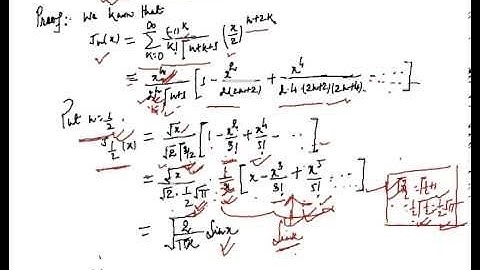 Proof:- We know that
Jn(x) = ∑ K=0 ∞ (-1)^K / K! Γn+K+1 (x/2)^n+2K
= x^n / 2^n Γn+1 [1 - x^2 / 2(2n+2) + x^4 / 2·4·(2n+2)(2n+4) - ...]
Put n=1/2
J1/2(x) = √x / √2 Γ3/2 [1 - x^2/3! + x^4/5! - ...]
= √x / √2 · 1/2 √π · 1/x [x - x^3/3! + x^5/5! ...]
= √2/πx Sinx
Sinx
Γ3/2 = Γ1/2+1
= 1/2 Γ1/2 = 1/2 √π